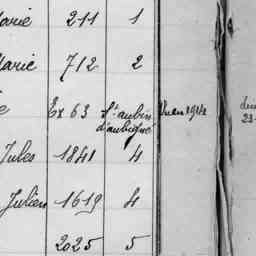 Marie 211 1
Marie 712 2
Ex 63 St aubin
d'aubigné
Vu en 1914
Jules 1841 4
Julien 1619 4
2025 5